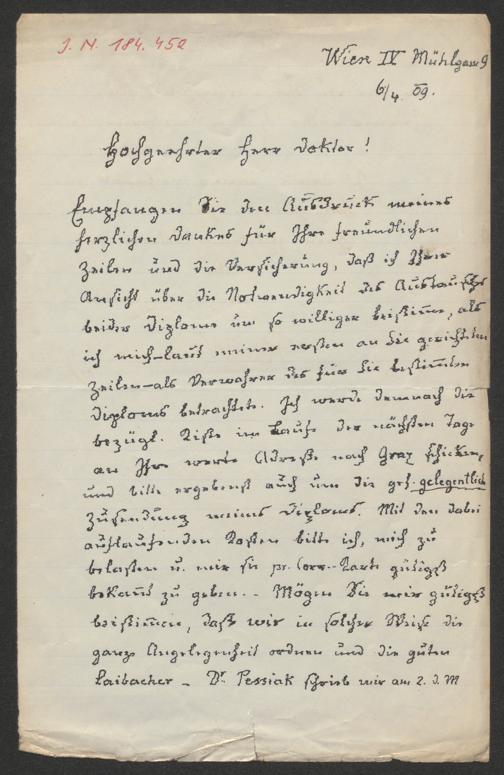 J. N. 184.452
Wien IV Mühlgasse 9
6/4 09.
Hochgeehrter Herr Doktor!
Empfangen Sie den Ausdruck meines
herzlichen Dankes für Ihre freundlichen
Zeilen und die Versicherung, daß ich Ihrer
Ansicht über die Notwendigkeit des Austausches
beider Diplome um so williger beistimme, als
ich mich – laut meiner ersten an Sie gerichteten
Zeilen – als Verwahrer des für Sie bestimmten
Diploms betrachtete. Ich werde demnach die
bezügl. Kiste im Laufe der nächsten Tage
an Ihre werte Adresse nach Graz schicken,
und bitte ergebenst auch um die gef. gelegentlich
Zusendung meines Diploms. Mit den dabei
auflaufenden Kosten bitte ich, mich zu
belasten u. mir sie pr. Corr.-Karte gütigst
bekannt zu geben. – Mögen Sie mir gütigst
beistimmen, daß wir in solcher Weise die
ganze Angelegenheit ordnen und die guten
Laibacher – Dr. Pessiak schrieb mir am 2. d. M